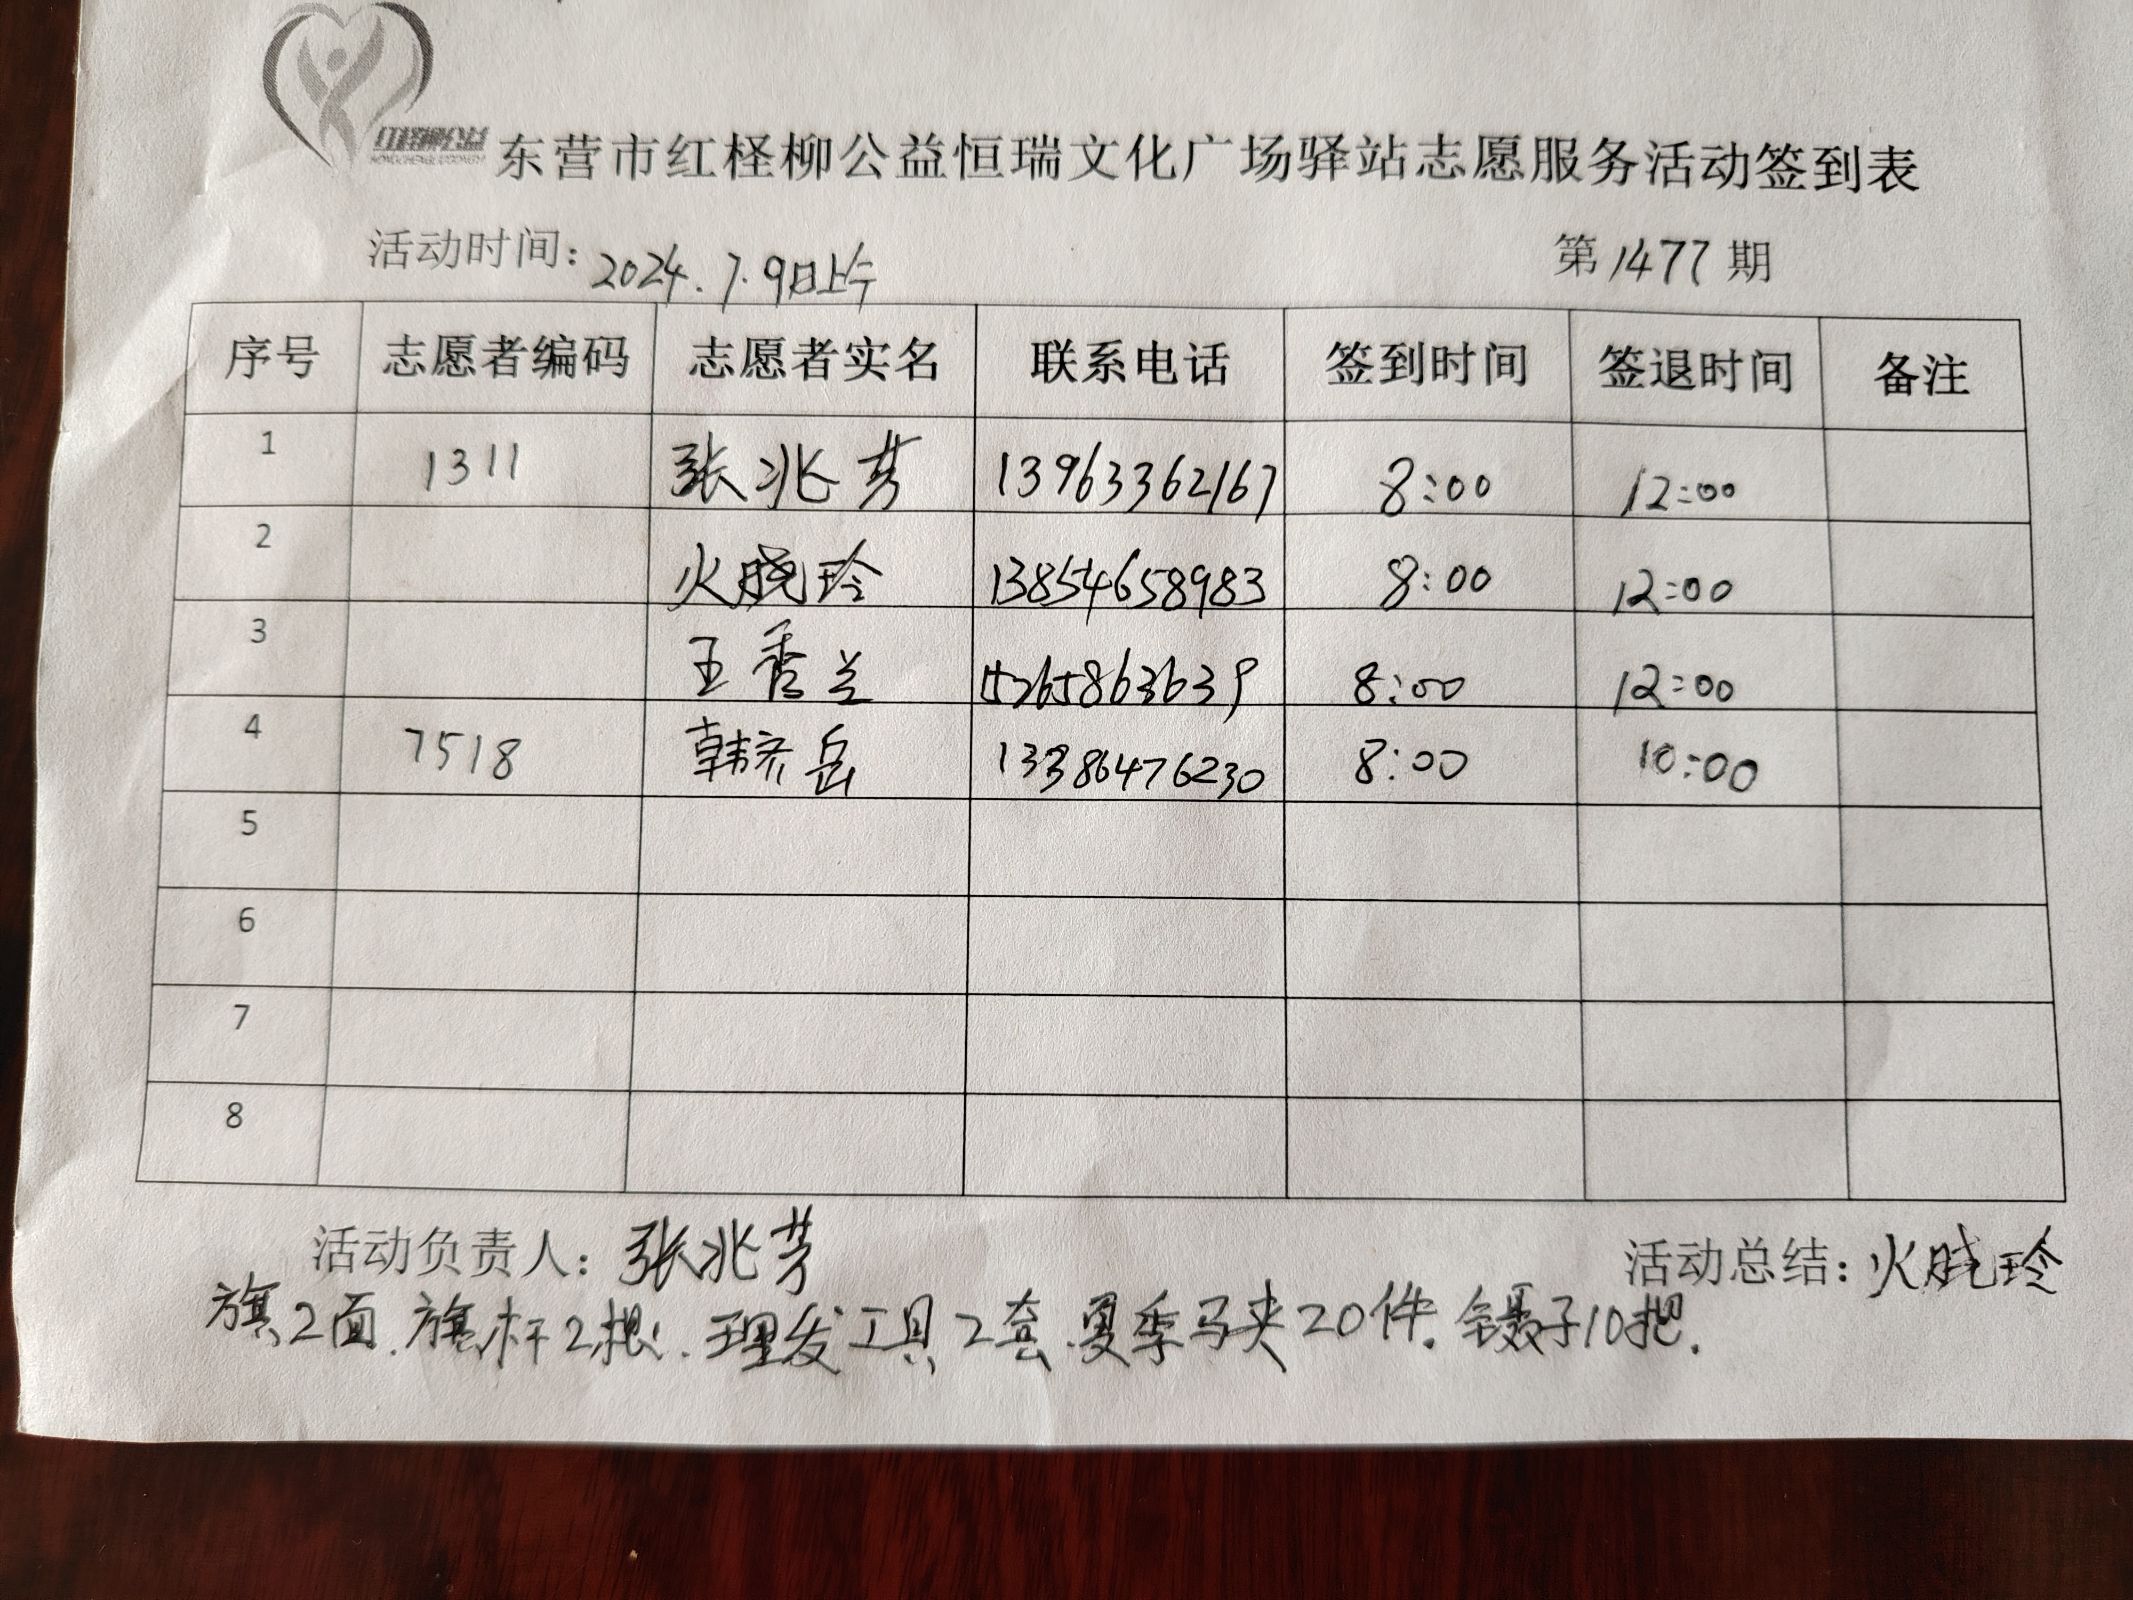 红柽柳公益
东营市红柽柳公益恒瑞文化广场驿站志愿服务活动签到表
活动时间：2024.7.9日上午 第1477期
序号 志愿者编码 志愿者实名 联系电话 签到时间 签退时间 备注
1 1311 张兆芳 13963362167 8:00 12:00
2 火晓玲 13854658983 8:00 12:00
3 王秀兰 15265863639 8:00 12:00
4 7518 韩齐岳 13386476230 8:00 10:00
5
6
7
8
活动负责人：张兆芳 活动总结：火晓玲
旗2面.旗杆2根.理发工具2套.夏季马夹20件.镊子10把.